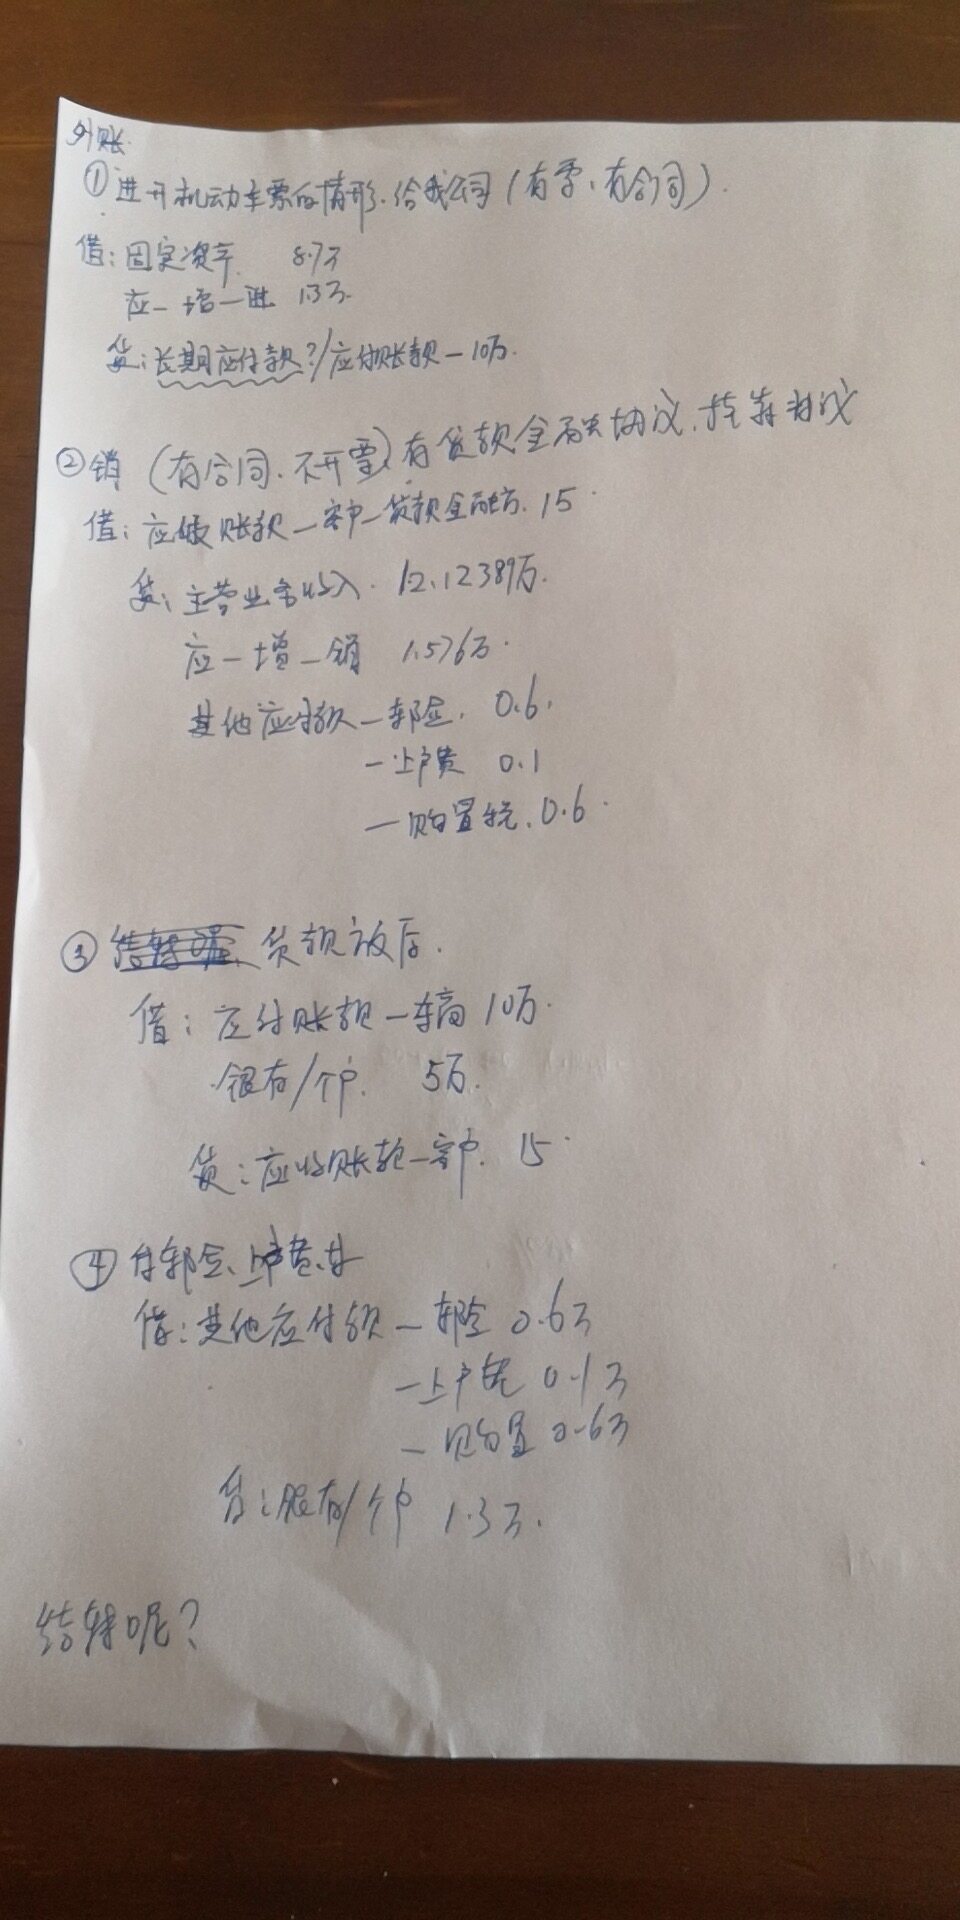 外账.
①进开机动车票的情形.给我公司(有票、有合同).
借:固定资产 8.7万
应一增一进 1.3万.
贷:长期应付款?/应付账款一10万.
②销(有合同.不开票)有贷款金融协议.挂靠协议
借:应收账款一客户一贷款金融方. 15
贷:主营业务收入. 12.12389万.
应一增一销 1.576万.
其他应付款一车险. 0.6.
一上户费 0.1
一购置税. 0.6.
③ 贷款放后.
借:应付账款一车商 10万.
银存/个户. 5万.
贷:应收账款一客户. 15
④付车险、上户费、
借:其他应付款一车险 0.6万
一上户费 0.1万
一购置 0.6万
贷:银存/个户 1.3万.
结转呢?